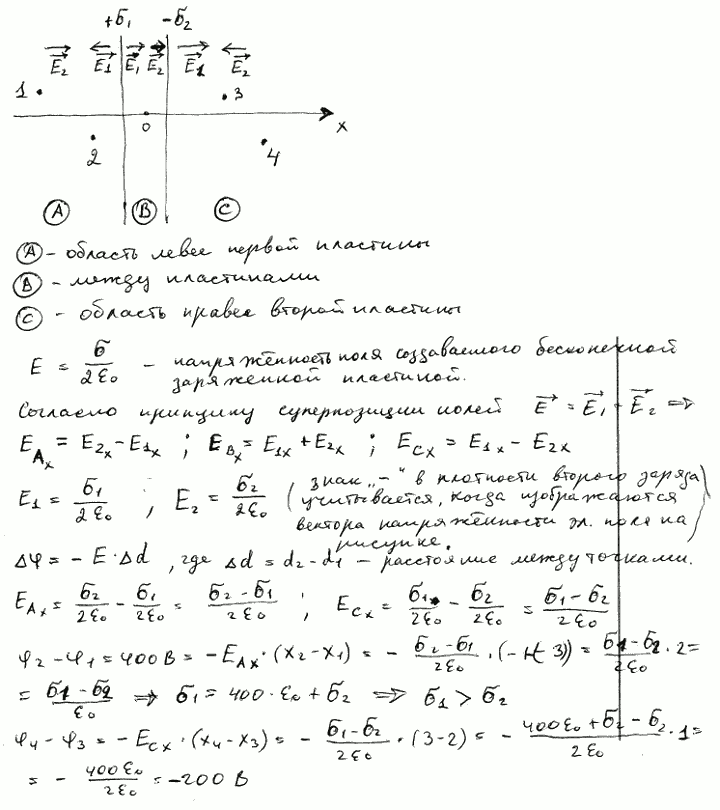 +б₁ -б₂
E₂ E₁ E₁ E₂ E₁ E₂
1 3
0 x
2 4
A B C
A - область левее первой пластины
B - между пластинами
C - область правее второй пластины
E = б/2ε₀ - напряжённость поля создаваемого бесконечной
заряженной пластиной.
Согласно принципу суперпозиции полей E = E₁ + E₂ ⇒
E_Ax = E₂x - E₁x ; E_Bx = E₁x + E₂x ; E_Cx = E₁x - E₂x
E₁ = б₁/2ε₀ ; E₂ = б₂/2ε₀ (знак „-“ в плотности второго заряда
учитывается, когда изображаются
вектора напряжённости эл. поля на
рисунке.)
Δφ = - E·Δd , где Δd = d₂ - d₁ - расстояние между точками.
E_Ax = б₂/2ε₀ - б₁/2ε₀ = (б₂ - б₁)/2ε₀ ; E_Cx = б₁/2ε₀ - б₂/2ε₀ = (б₁ - б₂)/2ε₀
φ₂ - φ₁ = 400 В = - E_Ax · (x₂ - x₁) = - (б₂ - б₁)/2ε₀ · (-1-(-3)) = (б₁ - б₂)/2ε₀ · 2 =
= (б₁ - б₂)/ε₀ ⇒ б₁ = 400·ε₀ + б₂ ⇒ б₁ > б₂
φ₄ - φ₃ = - E_Cx · (x₄ - x₃) = - (б₁ - б₂)/2ε₀ · (3 - 2) = - (400ε₀ + б₂ - б₂)/2ε₀ · 1 =
= - 400ε₀/2ε₀ = -200 В